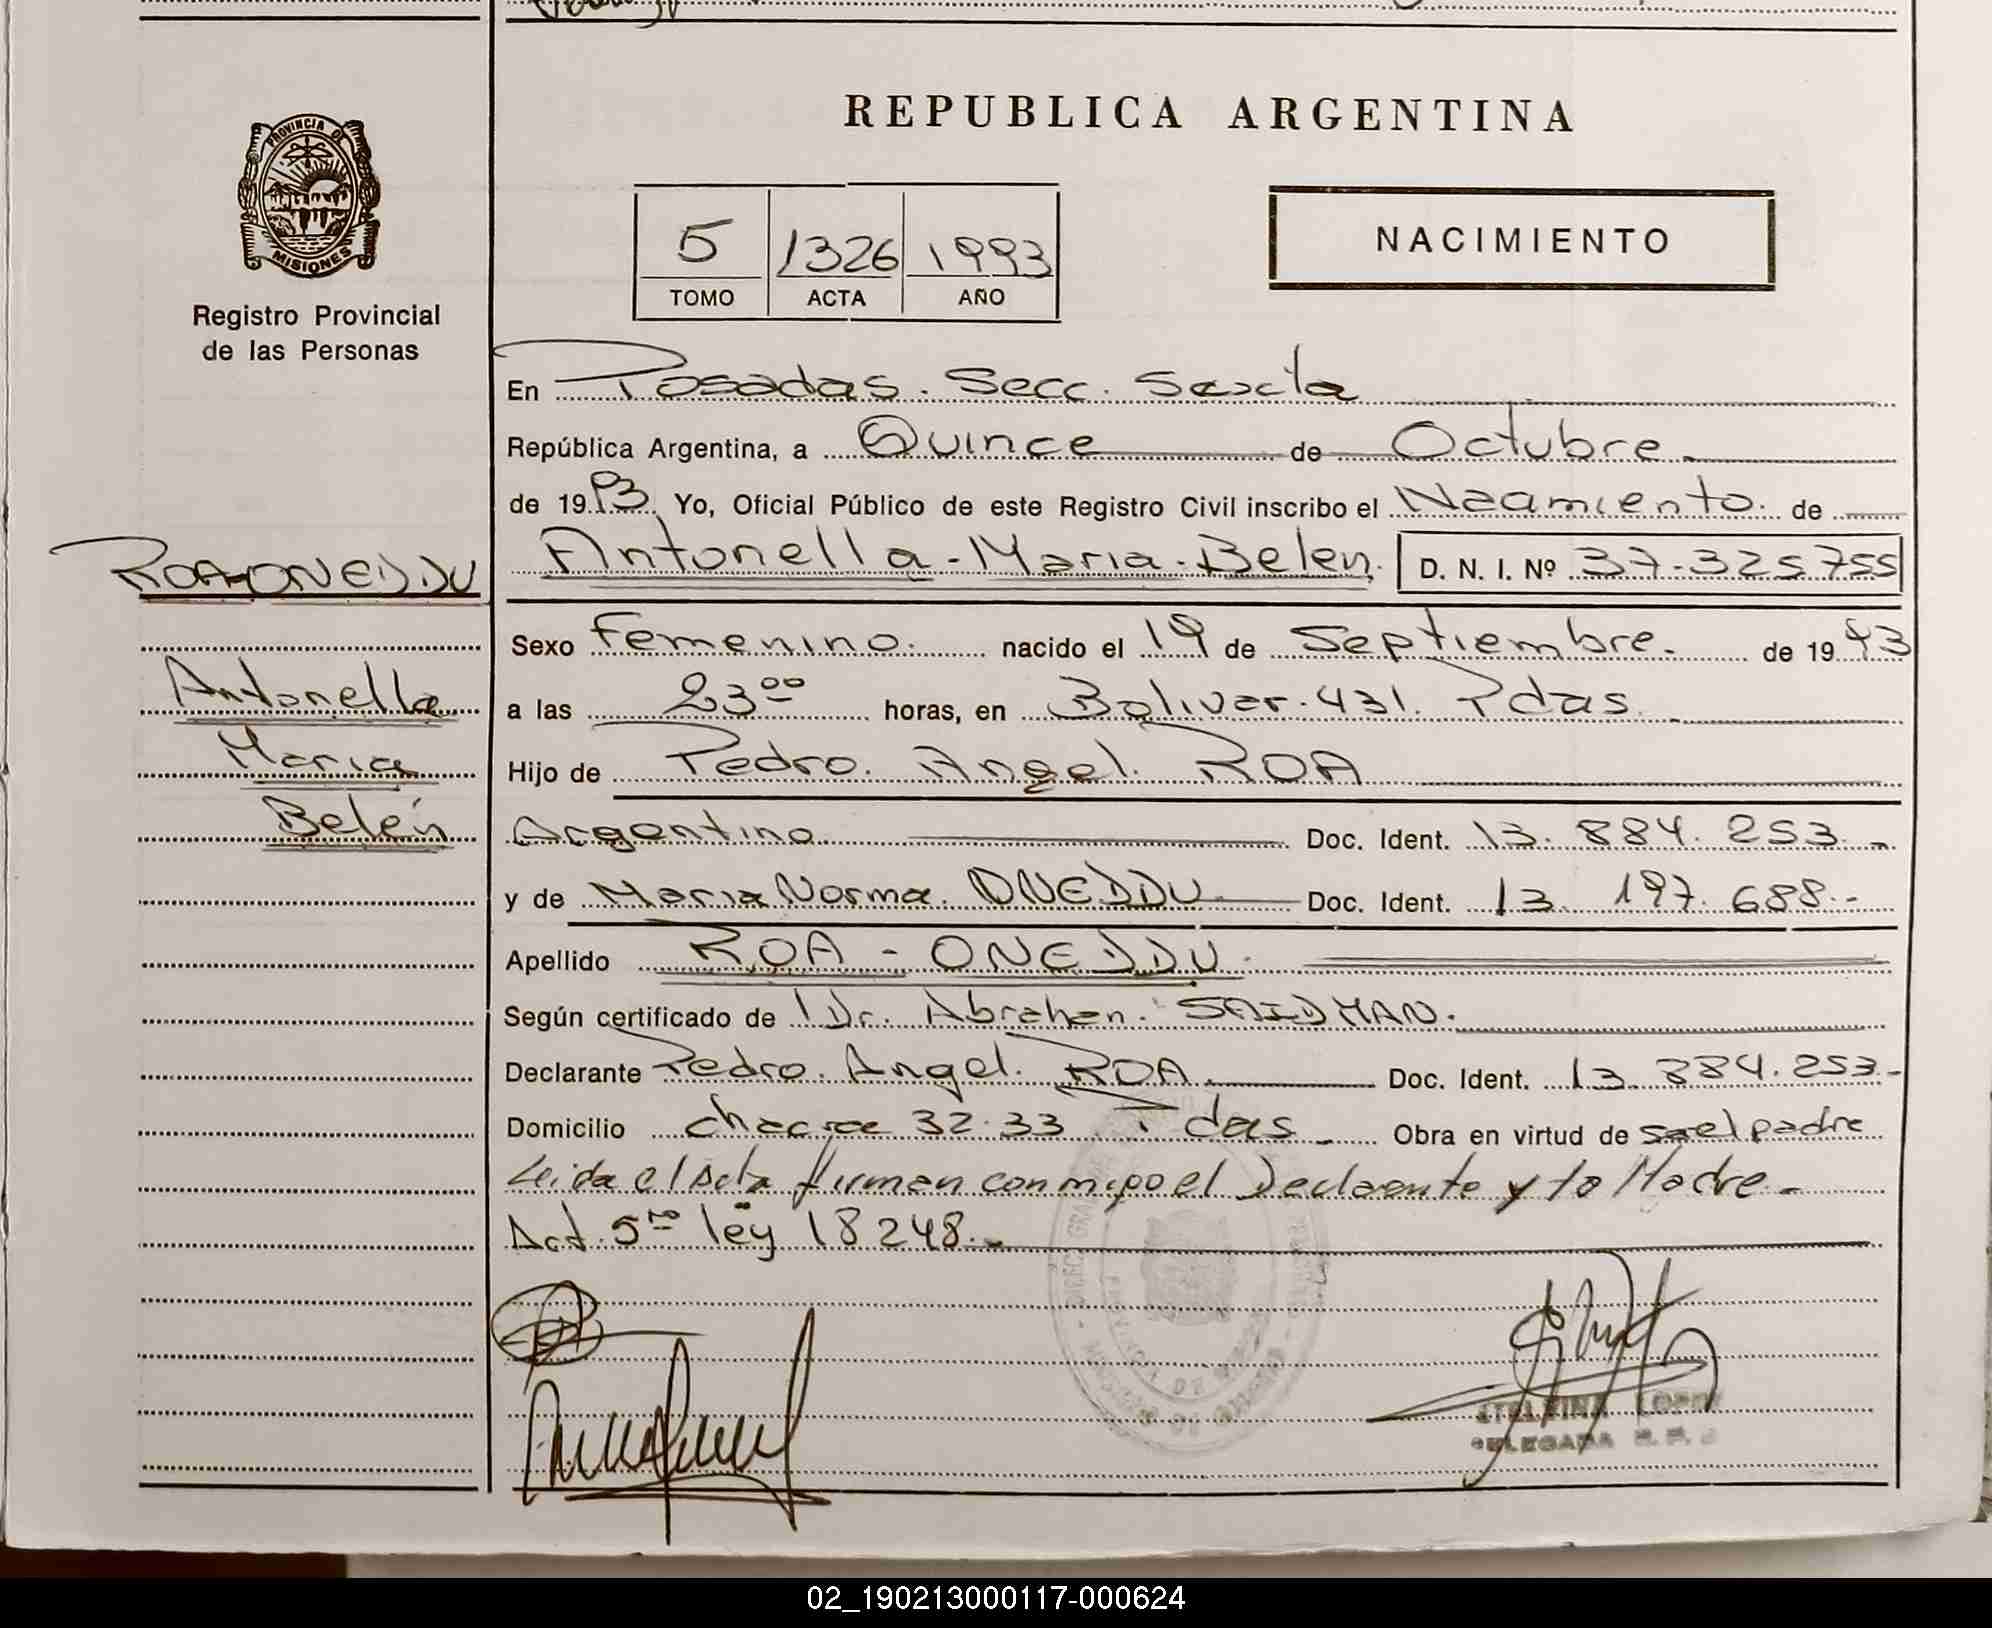 REPUBLICA ARGENTINA
PROVINCIA DE
MISIONES
Registro Provincial
de las Personas
5 1326 1993
TOMO ACTA AÑO
NACIMIENTO
En Posadas. Secc. Sexta
República Argentina, a Quince de Octubre
de 1993 Yo, Oficial Público de este Registro Civil inscribo el Nacimiento de
ROA-ONEDDU
Antonella
Maria
Belén
Antonella - Maria - Belen. D. N. I. Nº 37-325755
Sexo Femenino. nacido el 19 de Septiembre. de 1993
a las 23⁰⁰ horas, en Bolivar. 431. Pdas
Hijo de Pedro. Angel. ROA
Argentino Doc. Ident. 13. 884. 253.-
y de Maria Norma. ONEDDU Doc. Ident. 13. 197. 688.-
Apellido ROA - ONEDDU.
Según certificado de Dr. Abrahan. SAIDMAN.
Declarante Pedro. Angel. ROA Doc. Ident. 13. 884. 253-
Domicilio chacra 32.33 Pdas Obra en virtud de ser el padre
Leida el Acta firman conmigo el Declarante y la Madre -
Art. 5ᵗᵒ ley 18248.-
LOPEZ
DELEGADA
02_190213000117-000624